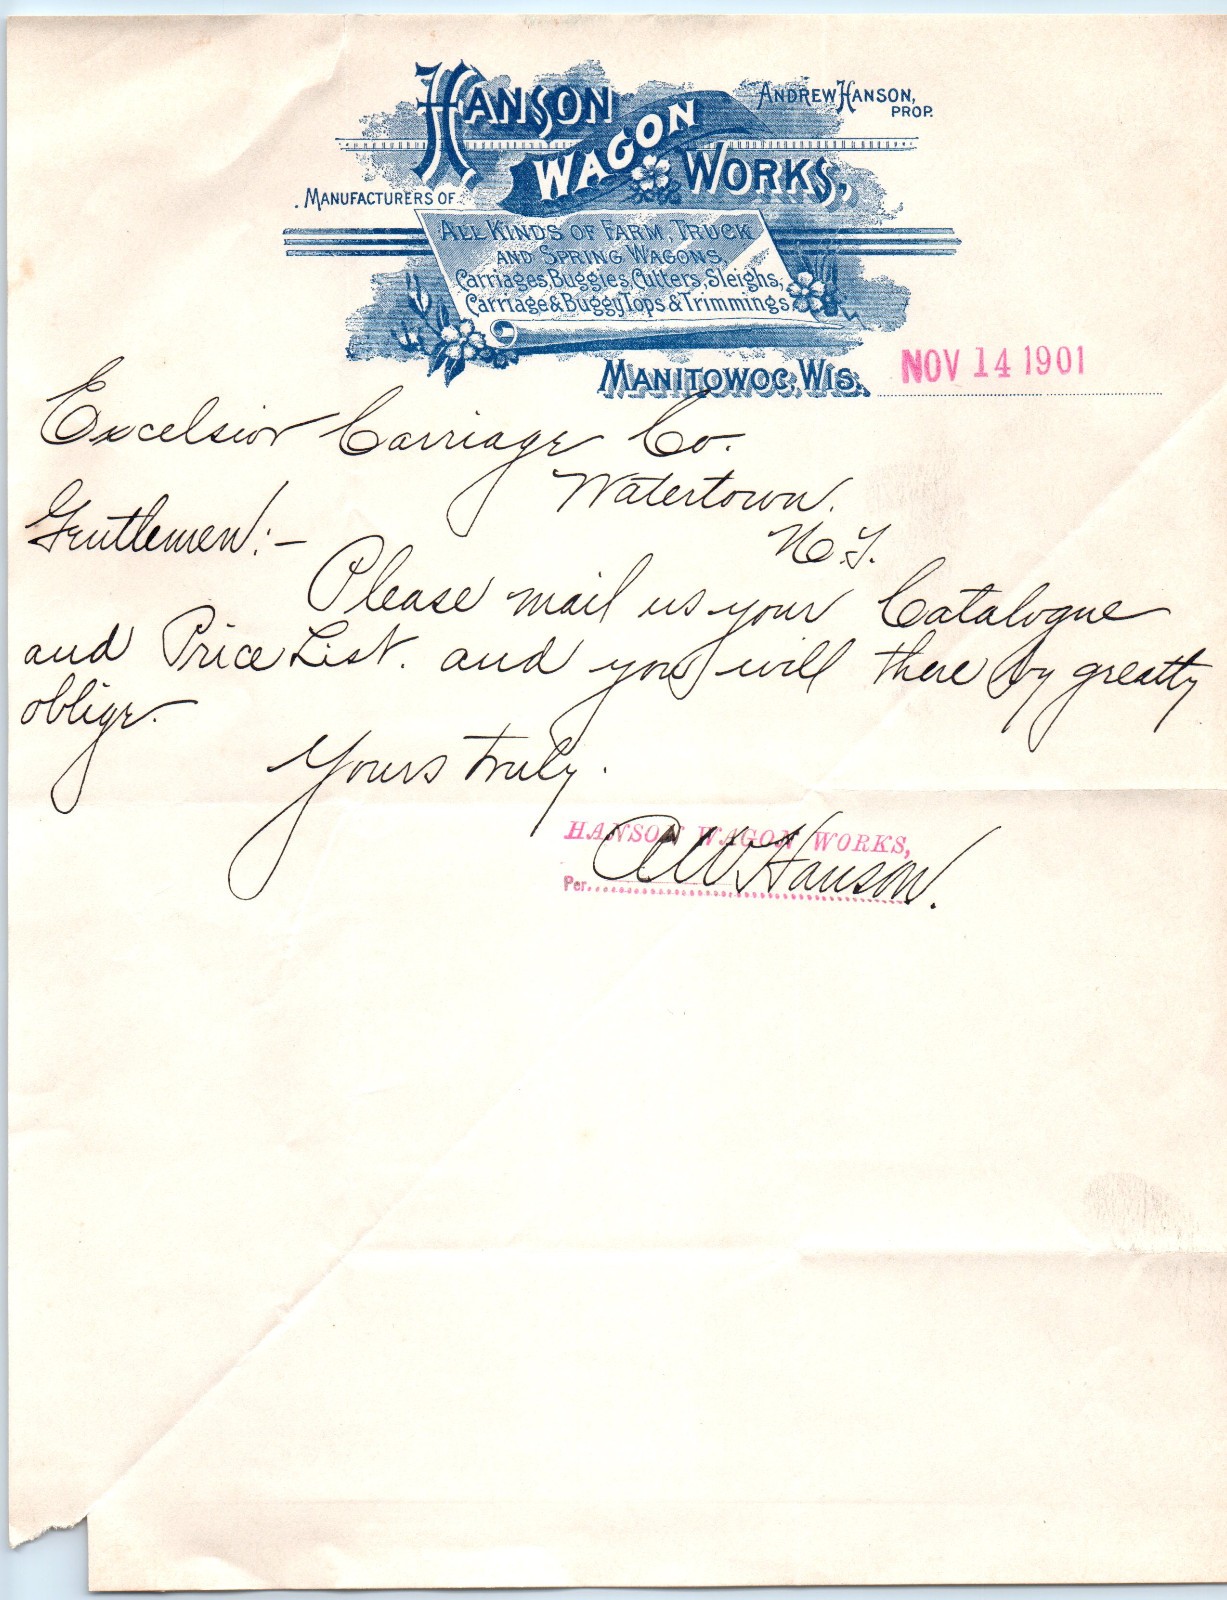 HANSON WAGON WORKS,
ANDREW HANSON,
PROP.
MANUFACTURERS OF
ALL KINDS OF FARM, TRUCK
AND SPRING WAGONS,
Carriages, Buggies, Cutters, Sleighs,
Carriage & Buggy Tops & Trimmings.
MANITOWOC, WIS. NOV 14 1901
Excelsior Carriage Co.
Watertown.
N.Y.
Gentlemen:-
Please mail us your Catalogue
and Price List. and you will there by greatly
oblige.
Yours truly.
HANSON WAGON WORKS,
Per. A W Hanson.